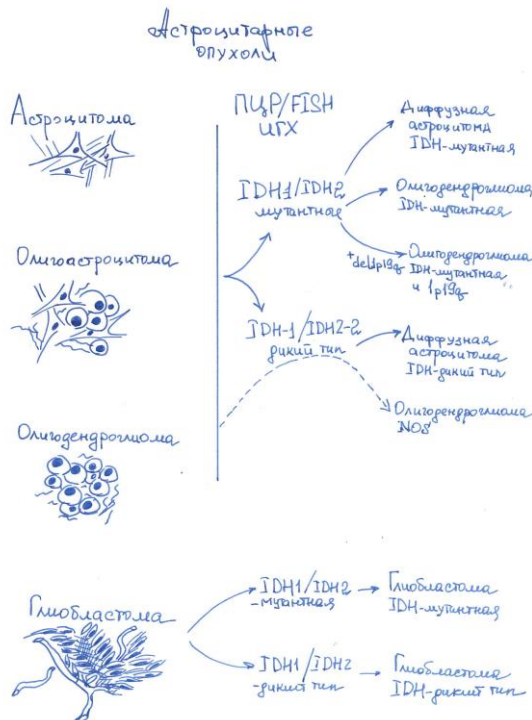 Астроцитарные
опухоли
Астроцитома
Олигоастроцитома
Олигодендроглиома
ПЦР/FISH
ИГХ
IDH1/IDH2
мутантные
Диффузная
астроцитома
IDH-мутантная
Олигодендроглиома
IDH-мутантная
+del1p19q
Олигодендроглиома
IDH-мутантная
и 1p19q
IDH-1/IDH2-2
дикий тип
Диффузная
астроцитома
IDH-дикий тип
Олигодендроглиома
NOS
Глиобластома
IDH1/IDH2
-мутантная
Глиобластома
IDH-мутантная
IDH1/IDH2
-дикий тип
Глиобластома
IDH-дикий тип